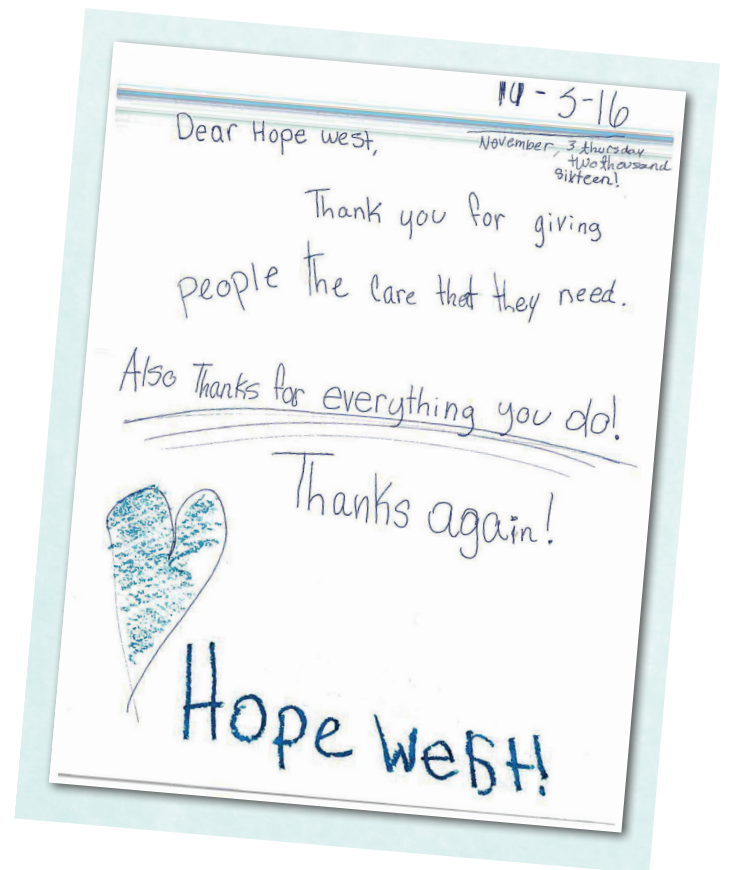 -5-16
November, 3 thursday
two thousand
sixteen!
Dear Hope west,
Thank you for giving
people the care that they need.
Also Thanks for everything you do!
Thanks again!
Hope West!